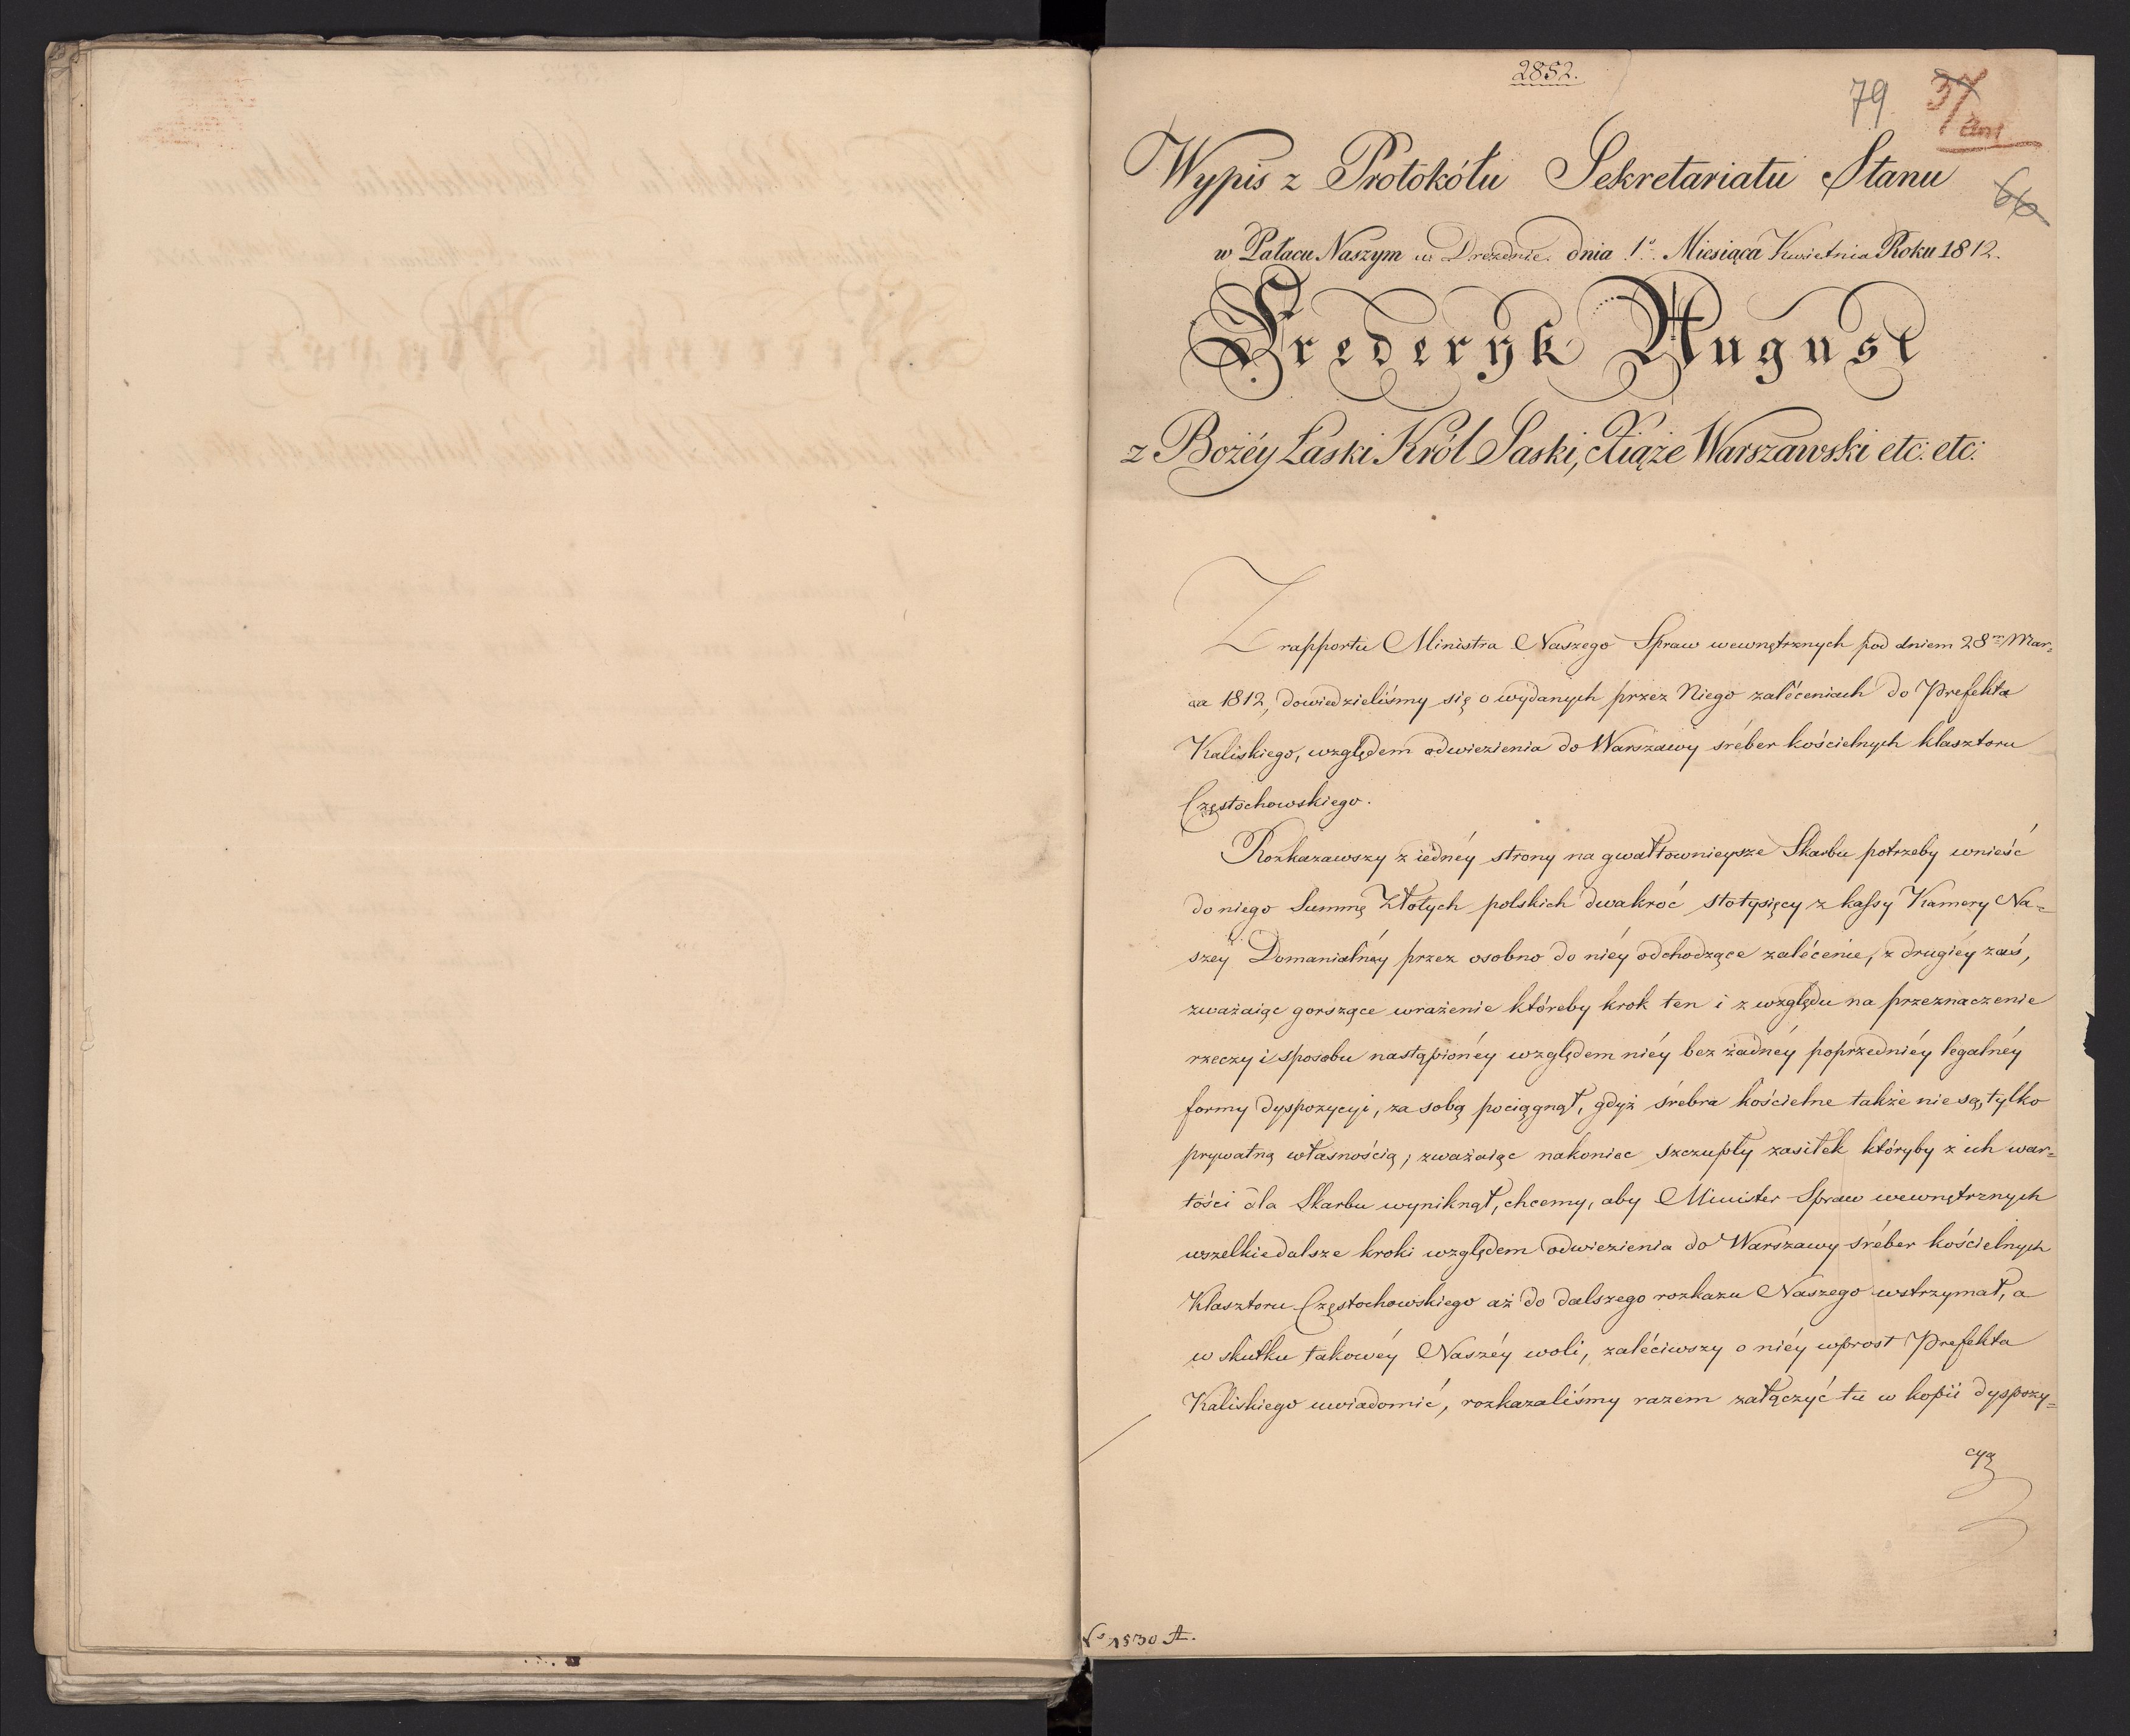 2852.
79
37
66
Wypis z Protokółu Sekretariatu Stanu
w Pałacu Naszym w Dreźnie. dnia 1º Miesiąca Kwietnia Roku 1812.
Frederyk August
z Bożéy Łaski Król Saski, Xiąże Warszawski etc: etc:
Z rapportu Ministra Naszego Spraw wewnętrznych pod dniem 28m Mar=
ca 1812, dowiedzieliśmy się o wydanych przez Niego zaléceniach do Prefekta
Kaliskiego, względem odwiezienia do Warszawy śréber kościelnych klasztoru
Częstochowskiego.
Rozkazawszy z iédnéy strony na gwałtownieysze Skarbu potrzeby wnieść
do niego Summę Złotych polskich dwakroć stotysięcy z kassy Kamery Na=
széy Domanialnéy przez osobno do niéy odchodzące zalécenie, z drugiéy zaś,
zważaiąc gorszące wrażenie któreby krok ten i z względu na przeznaczenie
rzeczy i sposobu nastąpionéy względem niéy bez żadnéy poprzedniéy legalnéy
formy dyspozycyi, za sobą pociągnął, gdyż śrebra kościelne także nie są tylko
prywatną własnością; zważaiąc nakoniec szczupły zasiłek któryby z ich war=
tości dla Skarbu wyniknął, chcemy, aby Minister Spraw wewnętrznych
wszelkie dalsze kroki względem odwiezienia do Warszawy śréber kościelnych
Klasztoru Częstochowskiego aż do dalszego rozkazu Naszego wstrzymał, a
w skutku takowéy Naszéy woli, zaléciwszy o niéy wprost Prefekta
Kaliskiego uwiadomić, rozkazaliśmy razem załączyć tu w kopii dyspozy=
cyą
No 1530 A.